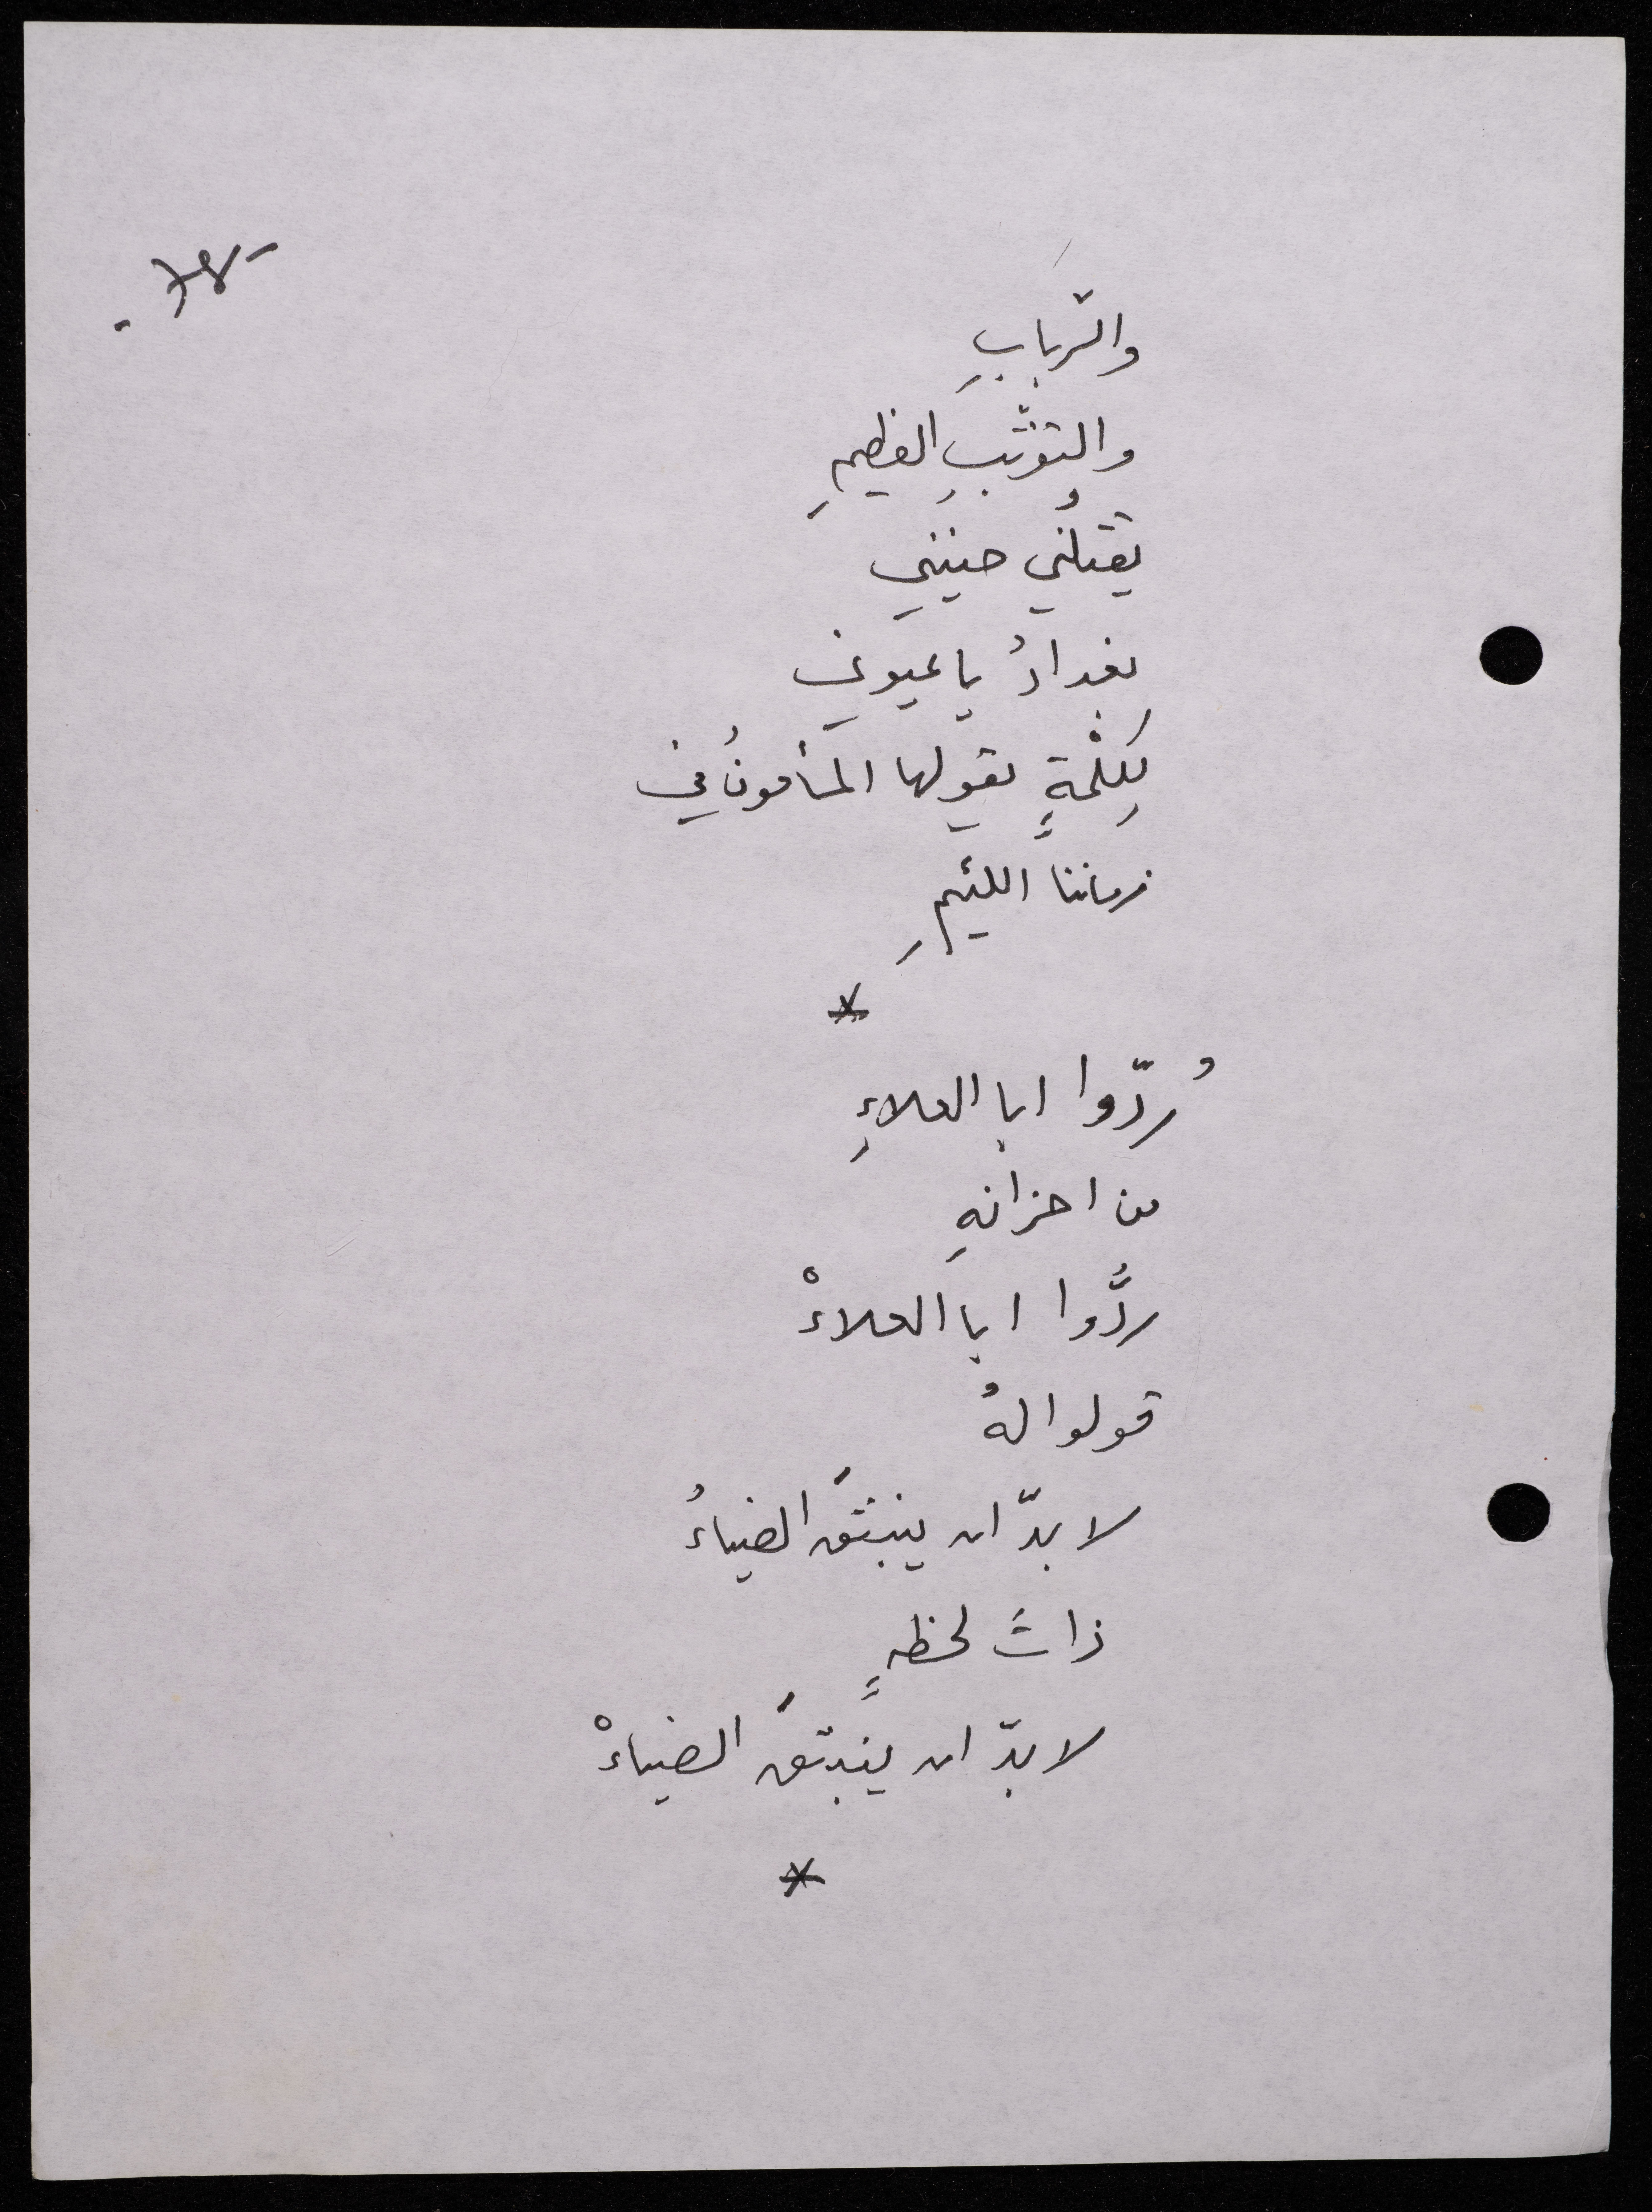 والرّبابِ
والتوثّبِ العظيمِ
يقتلُني حنيني
بغدادُ يا عيوني
لِكِلْمةٍ يقولها المأمونُ في
زماننا اللئيمِ
*
رُدّوا ابا العلاءِ
من احزانهِ
ردُّوا ابا العلاءْ
قولوا لهُ
لا بدّ ان ينبثقَ الضياءُ
ذاتَ لحظةٍ
لا بدّ ان ينبثقَ الضياءْ
*